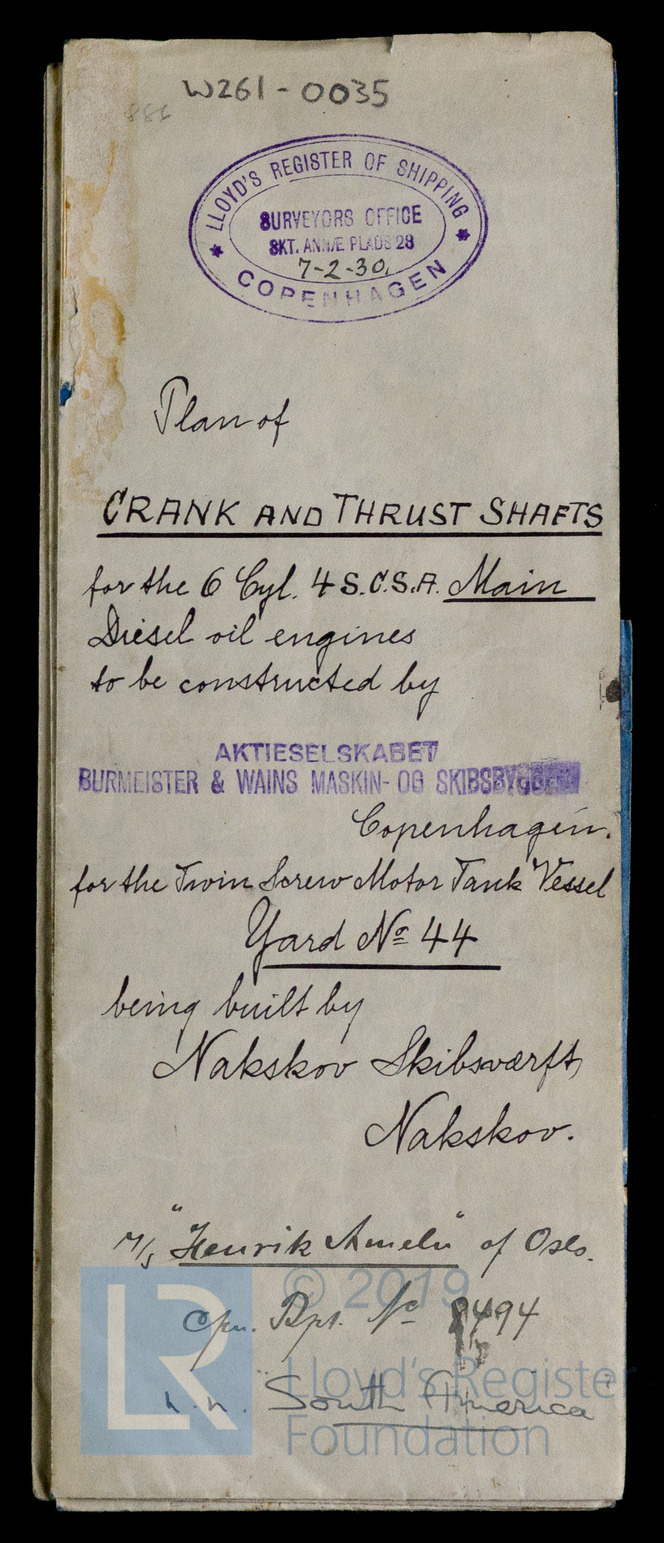 W261-0035
886
LLOYD'S REGISTER OF SHIPPING
SURVEYORS OFFICE
SKT. ANNÆ PLADS 28
7-2-30.
COPENHAGEN
Plan of
CRANK AND THRUST SHAFTS
for the 6 Cyl. 4 S.C.S.A. Main
Diesel oil engines
to be constructed by
AKTIESELSKABET
BURMEISTER & WAINS MASKIN- OG SKIBSBYGGERI
Copenhagen.
for the Twin Screw Motor Tank Vessel
Yard No 44
being built by
Nakskov Skibsværft,
Nakskov.
M/S "Henrik Ameln" of Oslo.
© 2019
Cpn. Rpt. No 8494
LR
Lloyd's Register
n.n. "South America"
Foundation